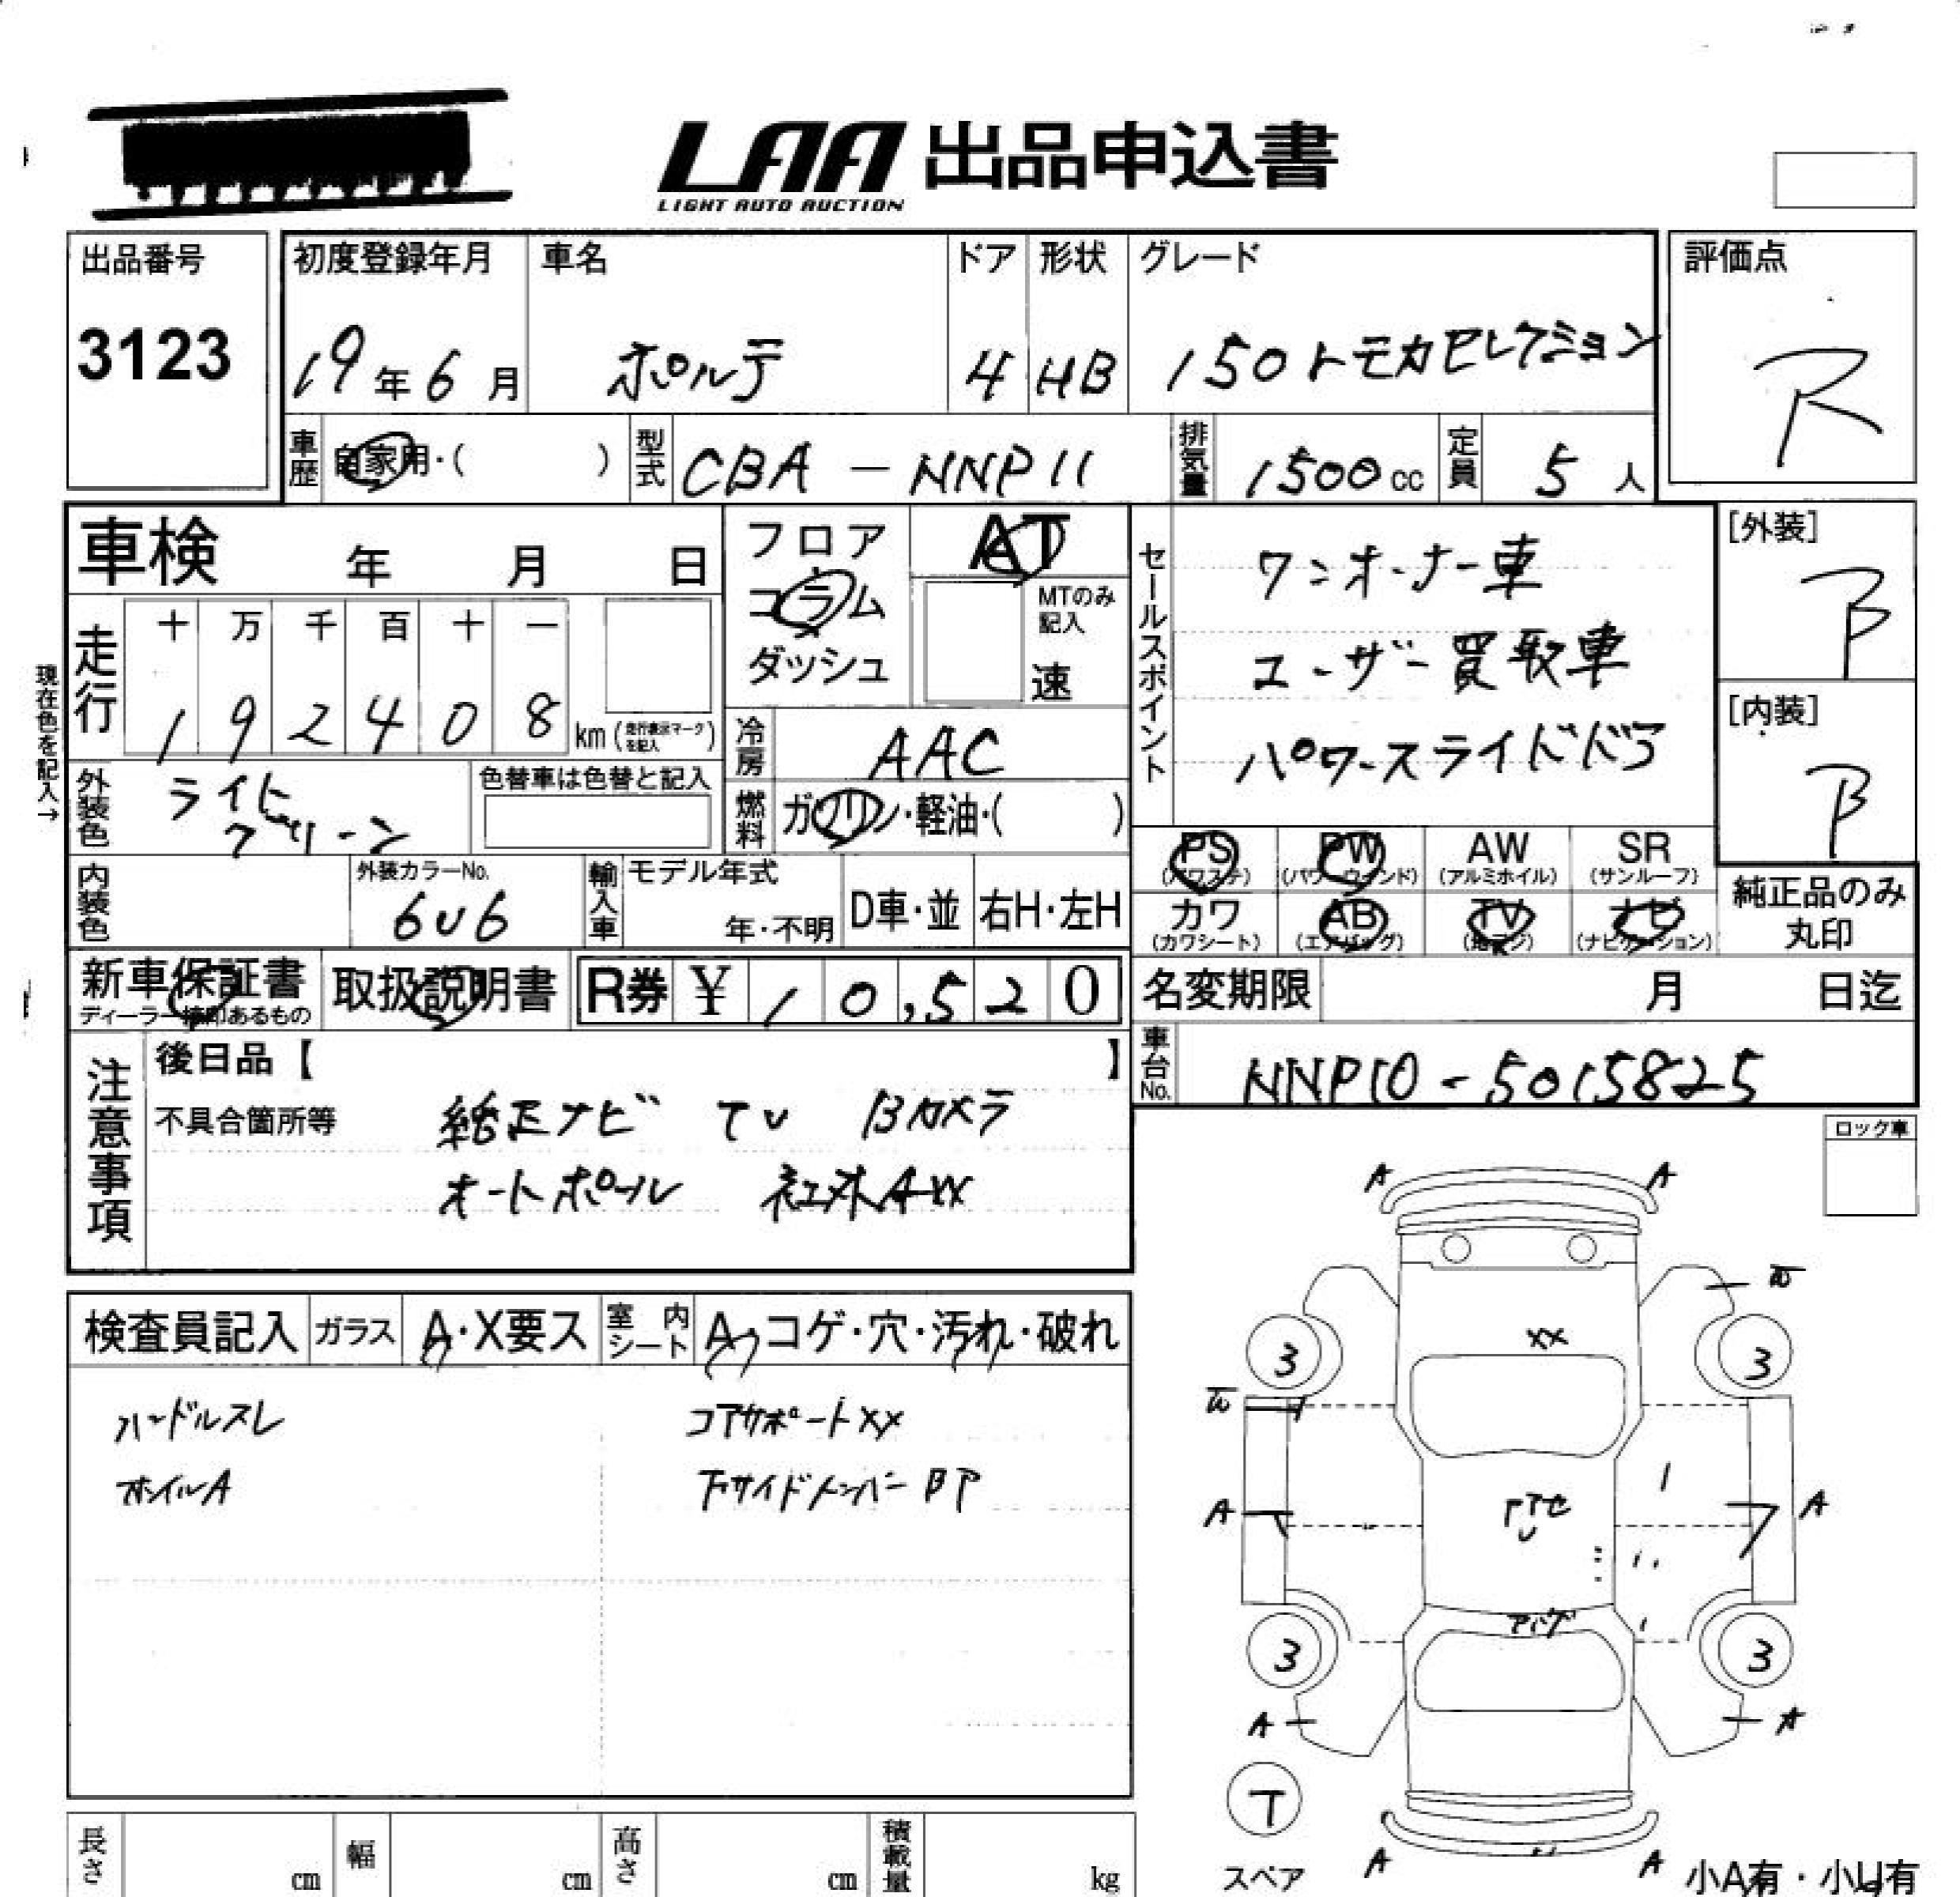 LAA 出品申込書
LIGHT AUTO AUCTION
出品番号
3123
初度登録年月
19年6月
車名
ポルテ
ドア
4
形状
HB
グレード
150トモカセレクション
評価点
R
車歴
自家用・( )
型式
CBA-NNP11
排気量
1500cc
定員
5人
車検 年 月 日
フロア
コラム
ダッシュ
AT
MTのみ記入
速
セールスポイント
ワンオーナー車
ユーザー買取車
パワースライドドア
[外装]
B
[内装]
B
現在色を記入→
走行
十 万 千 百 十 一
1 9 2 4 0 8
km(走行表示マークを記入)
冷房
AAC
外装色
ライト
グリーン
色替車は色替と記入
燃料
ガソリン・軽油・( )
PS
(パワステ)
PW
(パワーウインド)
AW
(アルミホイル)
SR
(サンルーフ)
カワ
(カワシート)
AB
(エアバッグ)
TV
(地デジ)
ナビ
(ナビゲーション)
純正品のみ
丸印
内装色
外装カラーNo.
6U6
輸入車
モデル年式
年・不明
D車・並
右H・左H
新車保証書
ディーラー捺印あるもの
取扱説明書
R券 ¥ 10,520
名変期限 月 日迄
車台No.
NNP10-5015825
注意事項
後日品【 】
不具合箇所等
純正ナビ TV Bカメラ
オートポール 内外AW
ロック車
検査員記入
ガラス
A・X要ス
室内シート
A・コゲ・穴・汚れ・破れ
ハンドルスレ
コアサポートXX
ホイルA
下サイドメンバーBP
A A
XX
3 3
A A
3 3
A A
T
スペア
A A
小A有・小U有
長さ cm
幅 cm
高さ cm
積載量 kg